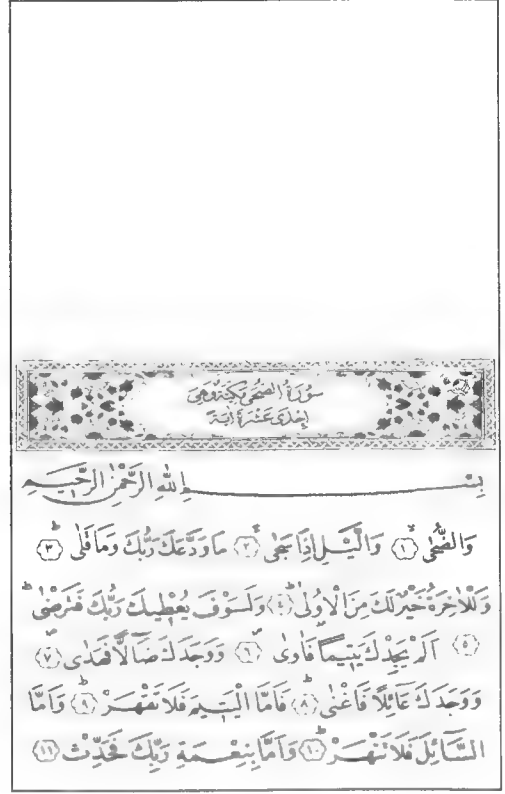 سُورَةُ الضُّحٰى مَكِّيَّةٌ وَهِىَ
اِحْدٰى عَشْرَةَ اٰيَةً
بِسْــــــــمِ اللّٰهِ الرَّحْمٰنِ الرَّحٖيمِ
وَالضُّحٰىۙ ﴿١﴾ وَالَّيْلِ اِذَا سَجٰىۙ ﴿٢﴾ مَا وَدَّعَكَ رَبُّكَ وَمَا قَلٰىۜ ﴿٣﴾
وَلَلْاٰخِرَةُ خَيْرٌ لَكَ مِنَ الْاُو۫لٰىۜ ﴿٤﴾ وَلَسَوْفَ يُعْطٖيكَ رَبُّكَ فَتَرْضٰىۜ
﴿٥﴾ اَلَمْ يَجِدْكَ يَتٖيمًا فَاٰوٰىۖ ﴿٦﴾ وَوَجَدَكَ ضَٓالًّا فَهَدٰىۖ ﴿٧﴾
وَوَجَدَكَ عَٓائِلًا فَاَغْنٰىۜ ﴿٨﴾ فَاَمَّا الْيَتٖيمَ فَلَا تَقْهَرْۜ ﴿٩﴾ وَاَمَّا
السَّٓائِلَ فَلَا تَنْهَرْۜ ﴿١٠﴾ وَاَمَّا بِنِعْمَةِ رَبِّكَ فَحَدِّثْ ﴿١١﴾